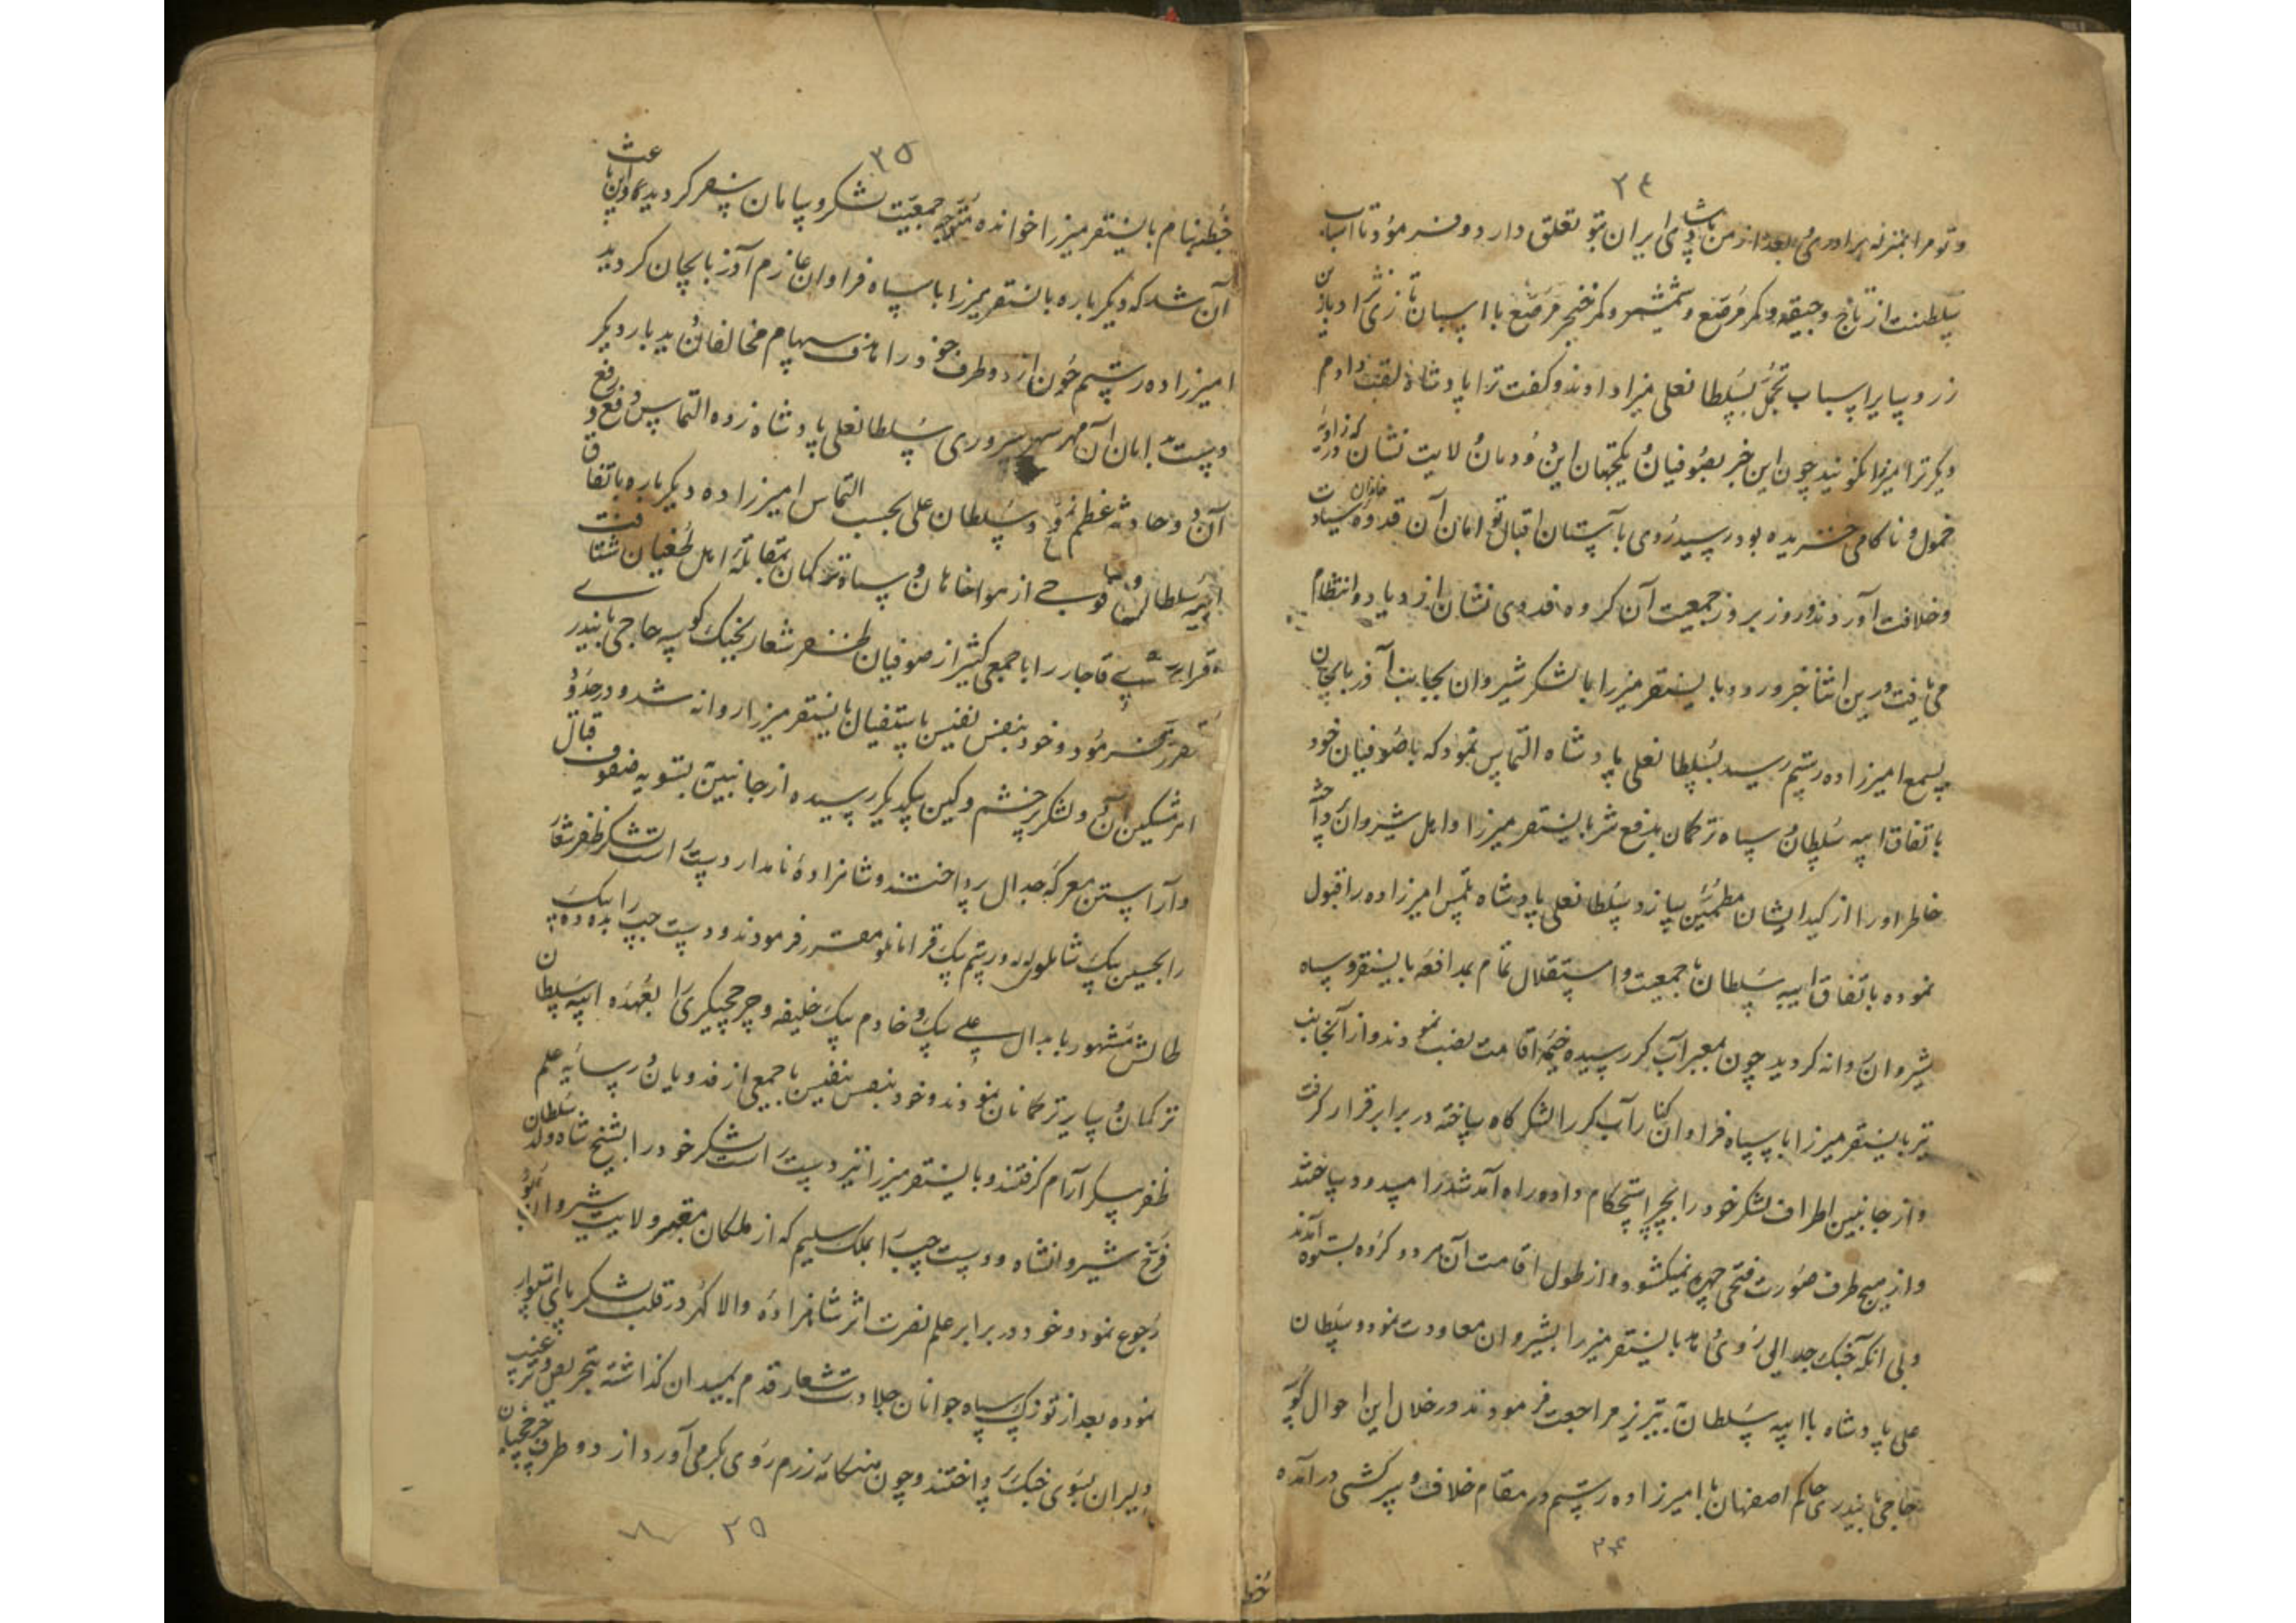 ۲۴
و تو مرا بمنزله برادری بعد از من پادشاهی ایران بتو تعلق دارد و فرمود تا اسباب
سلطنت از تاج و جیقه و کمر مرصع و شمشیر و کمر خنجر مرصع با اسبان تازی نژاد با زین
زر و سایر اسباب تجمل بسلطانعلی میرزا دادند و گفت ترا پادشاه لقب دادم
دیگر ترا میرزا نگویند چون این خبر بصوفیان و یکجهتان این دودمان ولایت نشان که در زاویه
خمول و ناکامی خزیده بود رسید روی بآستان اقبال توامان آن قدوه خاندان سیادت
و خلافت آوردند و روز بروز جمعیت آن کروه فدوی نشان ازدیاد و انتظام
می یافت درین اثنا خبر ورود بایسنقر میرزا با لشکر شیروان بجانب آذربایجان
بسمع امیرزاده رستم رسید بسلطانعلی پادشاه التماس نمود که با صوفیان خود
باتفاق ایبه سلطان و سپاه ترکمان بدفع شر بایسنقر میرزا و اهل شیروان پرداخته
خاطر او را از کید ایشان مطمئن سازد و سلطانعلی پادشاه ملتمس امیرزاده را قبول
نموده باتفاق ایبه سلطان با جمعیت و استقلال تمام بمدافعه بایسنقر و سپاه
شیروان روانه کردید چون بمعبر آب کر رسیده خیمه اقامت نصب نمودند و از آنجانب
نیز بایسنقر میرزا با سپاه فراوان کنار آب کر را لشکرگاه ساخته در برابر قرار کرفت
و از جانبین اطراف لشکر خود را بچپر استحکام داده راه آمد شد را مسدود ساختند
و از هیچ طرف صورت فتحی چهره نمیکشود و از طول اقامت آن هر دو کروه بستوه آمدند
و بی آنکه جنک و جدالی روی نماید بایسنقر میرزا بشیروان معاودت نمود و سلطان
علی پادشاه با ایبه سلطان بتبریز مراجعت فرمودند در خلال این احوال کوسه
حاجی بایندری حاکم اصفهان با امیرزاده رستم در مقام خلاف و سرکشی در آمده
۲۴
خطبه
۲۵
خطبه بنام بایسنقر میرزا خوانده متوجه جمعیت لشکر و سامان سفر کردید و این باعث
آن شد که دیگر باره بایسنقر میرزا با سپاه فراوان عازم آذربایجان کردید
امیرزاده رستم چون از دو طرف خود را هدف سهام مخالفان دید بار دیگر
دست بدامان آن مهر سپهر سروری سلطانعلی پادشاه زده التماس دفع و رفع
آن دو حادثه عظم نمود و سلطان علی بحسب التماس امیرزاده دیگر باره باتفاق
ایبه سلطان و فوجی از هواخاهان و سپاه ترکمان بمقابله اهل طغیان شتافت
قرابیری قاجار را با جمعی کثیر از صوفیان ظفر شعار بجنک کوسه حاجی بایندری
مقرر فرمود و خود بنفس نفیس باستقبال بایسنقر میرزا روانه شد و در حدود
آن دو لشکر پر خشم و کین بیکدیگر رسیده از جانبین بتسویه صفوف قتال
و آراستن معرکه جدال پرداختند و شاهزاده نامدار دست راست لشکر ظفر شعار
را بحسین بیک شاملو لله و رستم بیک قرامانلو مقرر فرمودند و دست چپ را بده ده بیک
طالش مشهور بابدال علی بیک و خادم بیک خلیفه و چرخچیگری را بعهده ایبه سلطان
ترکمان و سایر ترکمانان نمودند و خود بنفس نفیس با جمعی از فدویان در سایه علم
ظفر پیکر آرام کرفتند و بایسنقر میرزا نیز دست راست لشکر خود را بشیخ شاه ولد سلطان
فرخ شیروانشاه و دست چپ را بملک سلیم که از ملکان معتبر ولایت شیروان بود
رجوع نمود و خود در برابر علم نصرت اثر شاهزاده والا کهر در قلب لشکر پای استوار
نموده بعد از توزک سپاه جوانان جلادت شعار قدم بمیدان کذاشته بتحریص و ترغیب
دلیران بسوی جنک پرداختند و چون هنکامه رزم روی بکرمی آورد از دو طرف چرخچیان
۲۵